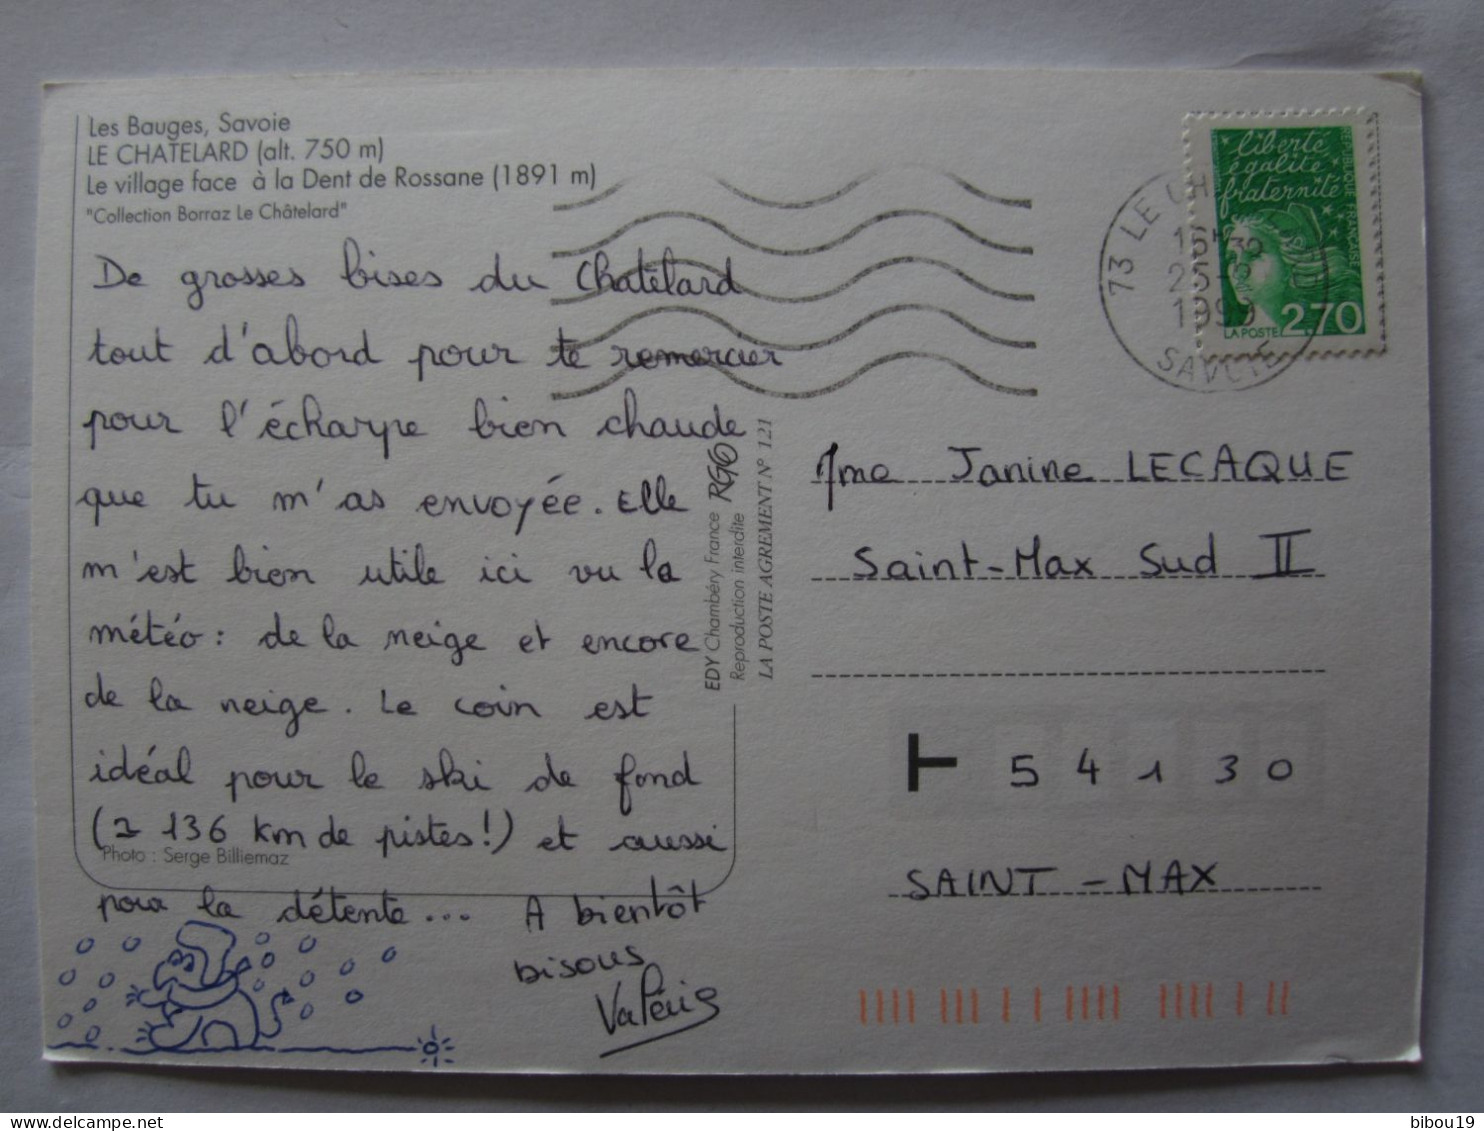 Les Bauges, Savoie
LE CHATELARD (alt. 750 m)
Le village face à la Dent de Rossane (1891 m)
"Collection Borraz Le Châtelard"
De grosses bises du Chatelard
tout d'abord pour te remercier
pour l'écharpe bien chaude
que tu m'as envoyée. Elle
m'est bien utile ici vu la
météo : de la neige et encore
de la neige. Le coin est
idéal pour le ski de fond
(≃ 136 km de pistes!) et aussi
Photo : Serge Billiemaz
pour la détente... A bientôt
bisous
Valérie
EDY Chambéry France
Reproduction interdite
LA POSTE AGREMENT N° 121
73 LE CH
1999
SAVOIE
liberté
égalité
fraternité
REPUBLIQUE FRANÇAISE
LA POSTE 2,70
Mme Janine LECAQUE
Saint-Max Sud II
54130
SAINT-MAX
bibou19